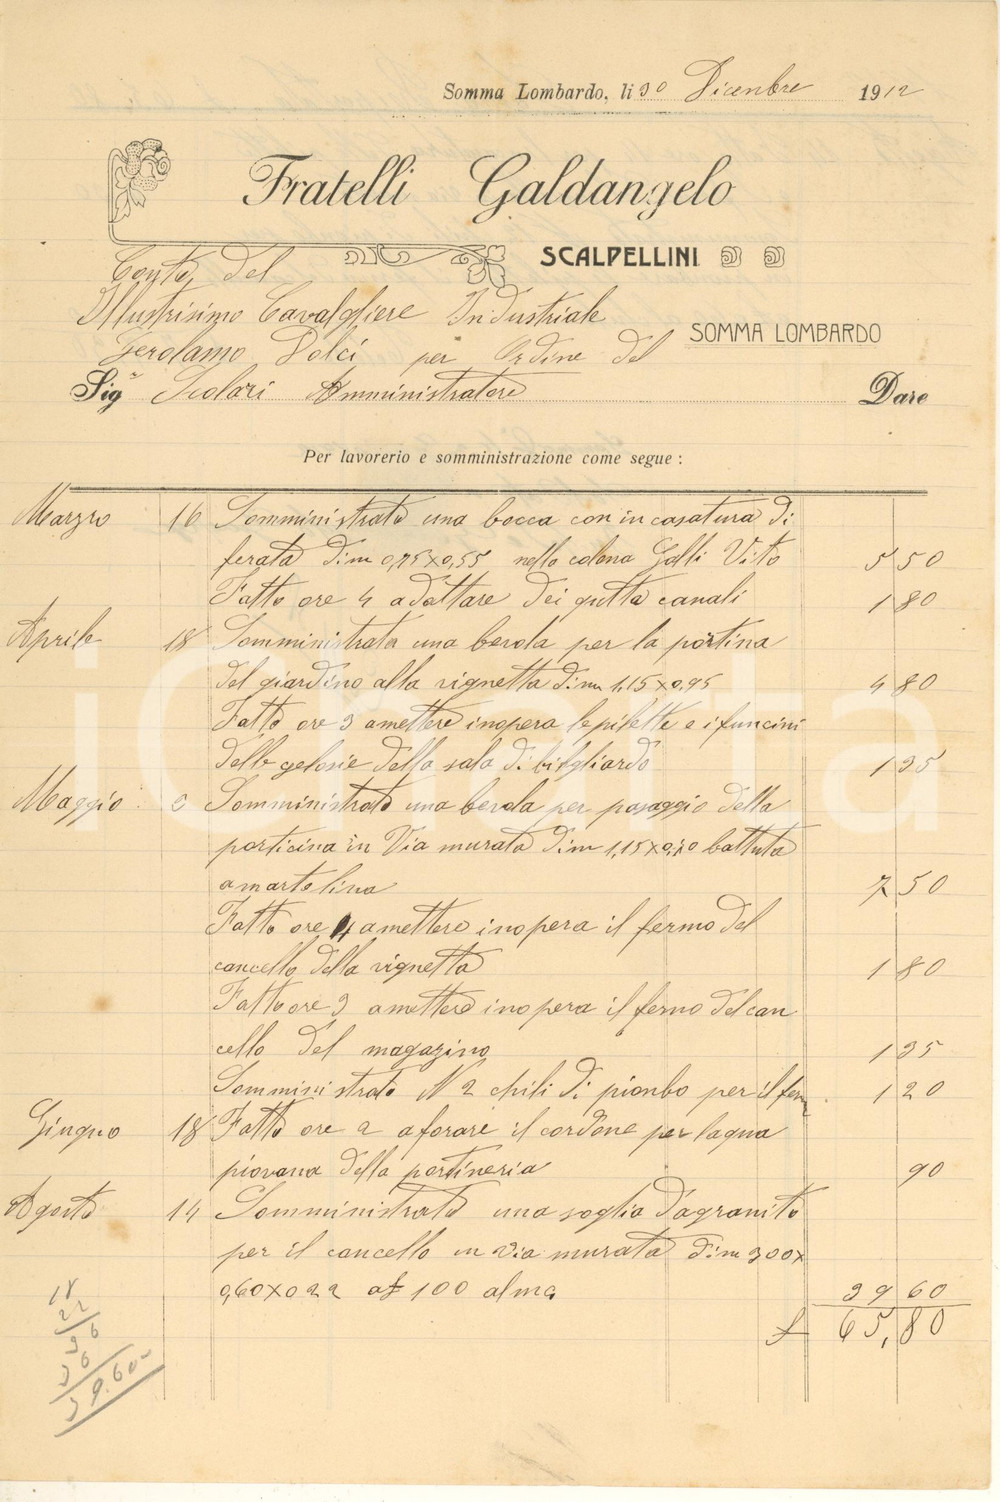 Somma Lombardo, li 30 Dicenbre 1912
Fratelli Galdangelo
SCALPELLINI
Conto del
Illustrisimo Cavalgliere Industriale
SOMMA LOMBARDO
Gerolamo Dolci per Ordine del
Sig.r Scolari Amministratore Dare
Per lavorerio e somministrazione come segue :
Marzro 16 Somministrato una bocca con in casatura di
ferata dim 0,75x0,55 nello colona Galli Vito 5 50
Fatto ore 4 adattare dei gutta canali 1 80
Aprile 18 Somministrata una berola per la portina
del giardino alla vignetta dim 1,15x0,95 4 80
Fatto ore 3 amettere inopera le pilette e i funcini
delle gelosie della sala di bilgliardo 1 35
Maggio 3 Somministrato una berola per pasaggio della
porticina in Via murata dim 1,15x0,70 battuta
a martelina 7 50
Fatto ore 4 amettere inopera il fermo del
cancello della vignetta 1 80
Fatto ore 3 amettere inopera il fermo del can
cello del magazino 1 35
Somministrato N 2 chili di pionbo per il fermo 1 20
Giugno 18 Fatto ore 2 aforare il cordone per laqua
piovana della portineria 90
Agosto 14 Somministrato una soglia d'agranito
per il cancello in via murata dim 3 00x
0,60x0 22 a £ 100 al mc 39 60
£ 65,80
18
22
36
36
39.60
iCharta